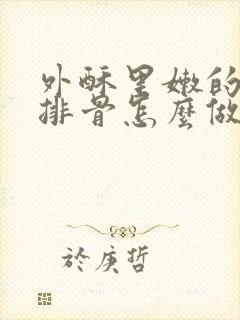 外酥里嫩的
排骨怎麼做
於庚哲